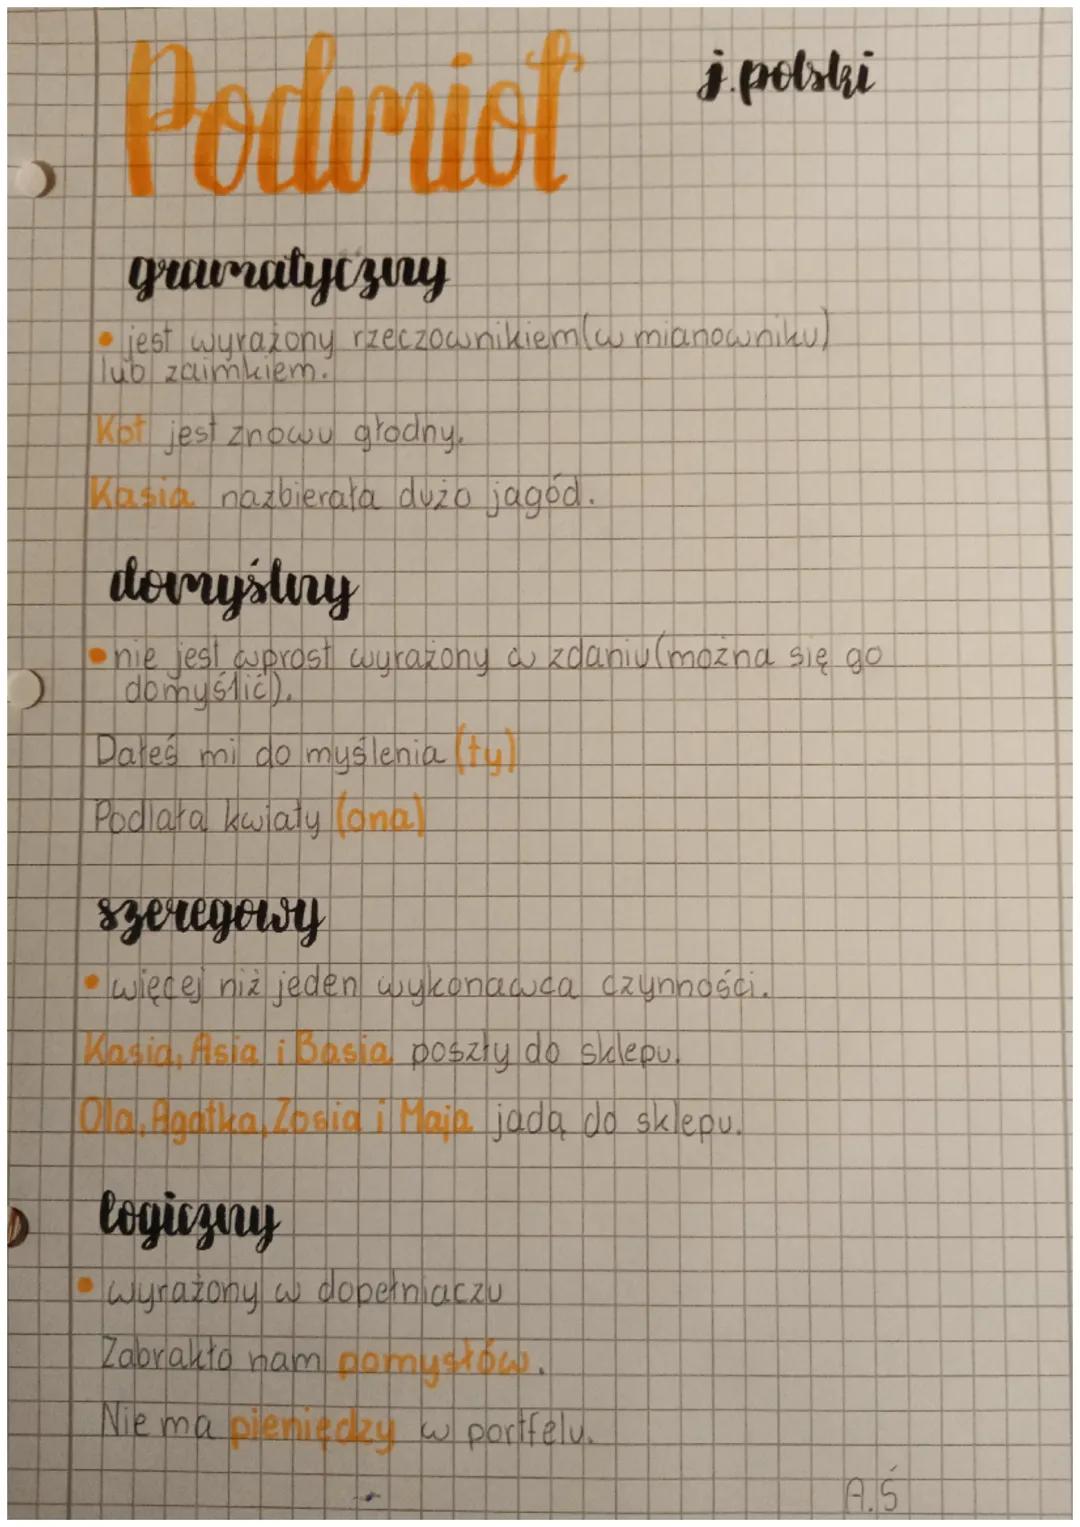 Podmiot
j.polski
gramatyczny
• jest wyrażony rzeczownikiem(w mianowniku)
lub zaimkiem.
Kot jest znowu głodny.
Kasia nazbierała dużo jagód.
domyślny
• nie jest wprost wyrażony w zdaniu(można się go
domyślić).
Dałeś mi do myślenia (ty)
Podlała kwiaty (ona)
szeregowy
• więcej niż jeden wykonawca czynności.
Kasia, Asia i Basia poszły do sklepu.
Ola, Agatka, Zosia i Maja jadą do sklepu.
logiczny
• wyrażony w dopełniaczu
Zabrakło nam pomysłów.
Nie ma pieniędzy w portfelu.
A.Ś